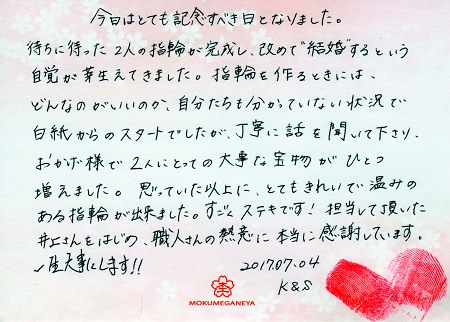 今日はとても記念すべき日となりました。
待ちに待った2人の指輪が完成し、改めて"結婚"するという
自覚が芽生えてきました。指輪を作るときには、
どんなのがいいのか、自分たちも分かっていない状況で
白紙からのスタートでしたが、丁寧に話を聞いて下さり、
おかげ様で2人にとっての大事な宝物がひとつ
増えました。思っていた以上に、とてもきれいで温みの
ある指輪が出来ました。すごくステキです!担当して頂いた
井上さんをはじめ、職人さんの熱意に本当に感謝しています。
一生大事にします!!
2017.07.04
K&S
MOKUMEGANEYA